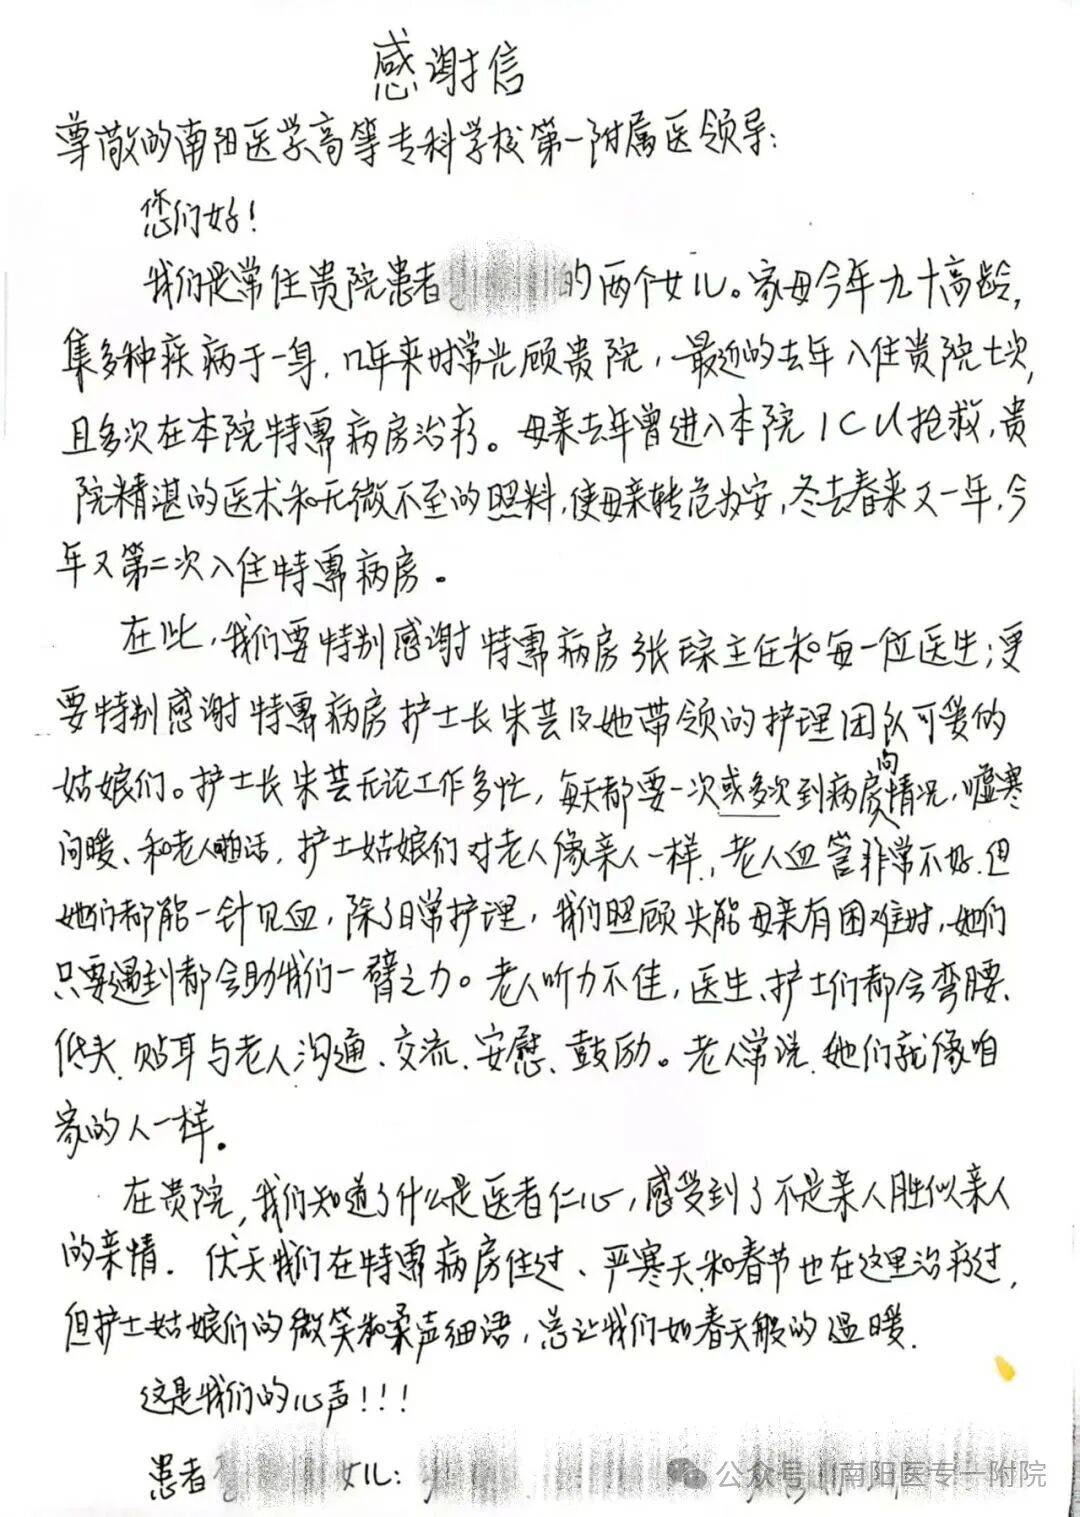 感谢信
尊敬的南阳医学高等专科学校第一附属医领导:
您们好!
我们是常住贵院患者 的两个女儿。家母今年九十高龄,
集多种疾病于一身,几年来时常光顾贵院,最近的去年入住贵院七次,
且多次在本院特需病房治疗。母亲去年曾进入本院ICU抢救,贵
院精湛的医术和无微不至的照料,使母亲转危为安,冬去春来又一年,今
年又第二次入住特需病房。
在此,我们要特别感谢特需病房张琼主任和每一位医生;更
要特别感谢特需病房护士长朱芸及她带领的护理团队可爱的
姑娘们。护士长朱芸无论工作多忙,每天都要一次或多次到病房问情况,嘘寒
问暖、和老人啪话,护士姑娘们对老人像亲人一样,老人血管非常不好.但
她们都能一针见血,除了日常护理,我们照顾失能母亲有困难时,她们
只要遇到都会助我们一臂之力。老人听力不佳,医生、护士们都会弯腰、
低头、贴耳与老人沟通、交流、安慰、鼓励。老人常说.她们就像咱
家的人一样。
在贵院,我们知道了什么是医者仁心,感受到了不是亲人胜似亲人
的亲情.伏天我们在特需病房住过、严寒天和春节也在这里治疗过,
但护士姑娘们的微笑和柔声细语,总让我们如春天般的温暖.
这是我们的心声!!!
患者 女儿:
公众号 南阳医专一附院